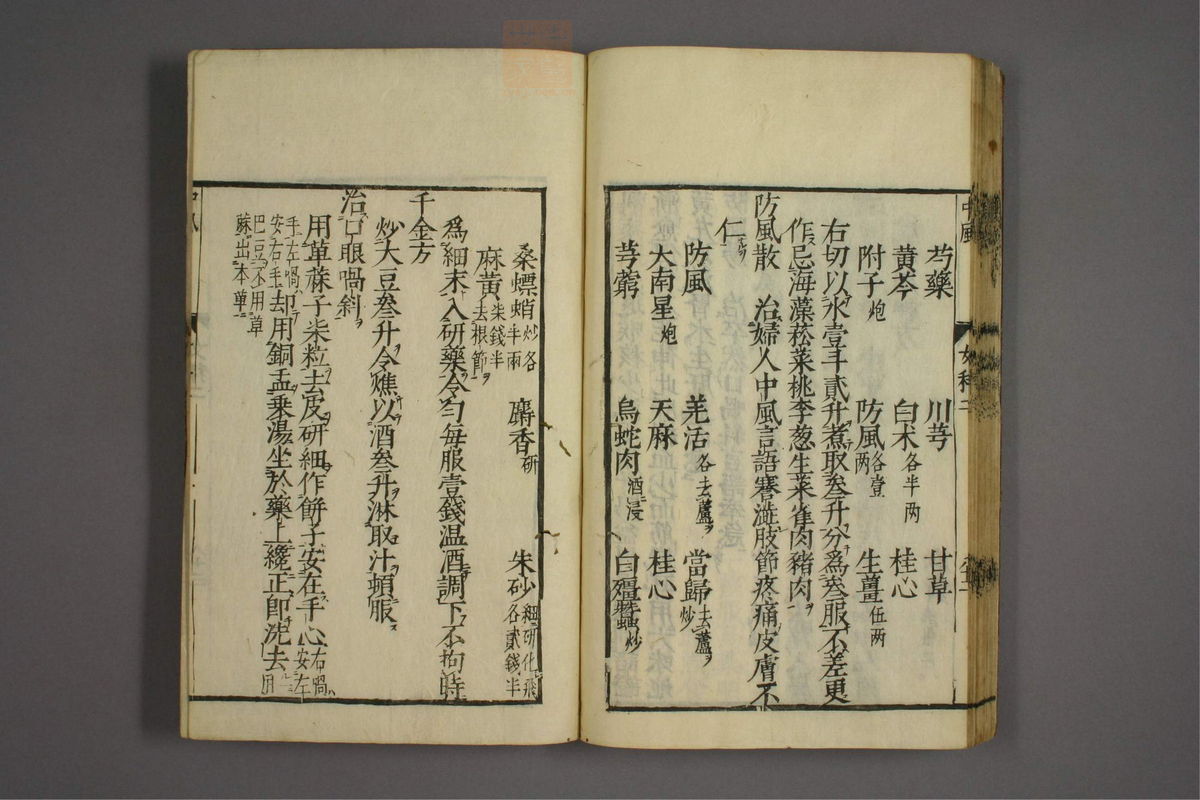 芍藥 川芎 甘草
黃芩 白朮各半兩 桂心
附子炮 防風各壹兩 生薑伍兩
右切以水壹斗貳升煮取叁升分爲叁服不差更
作忌海藻菘菜桃李葱生菜雀肉豬肉
防風散 治婦人中風言語謇澁肢節疼痛皮膚不
仁
防風 羌活各去蘆 當歸去蘆炒
大南星炮 天麻 桂心
芎藭 烏蛇肉酒浸 白殭蠶炒
桑螵蛸炒各半兩 麝香研 朱砂細研化飛各貳錢半
麻黃柒錢半去根節
爲細末入研藥令勻每服壹錢温酒調下不拘時
千金方
炒大豆叁升令燋以酒叁升淋取汁頓服
治口眼喎斜
用萆蔴子柒粒去皮研細作餠子安在手心右喎安左
手左喎安右手却用銅盂乗湯坐於藥上纔正即洗去用
巴豆不用萆
蔴出本草